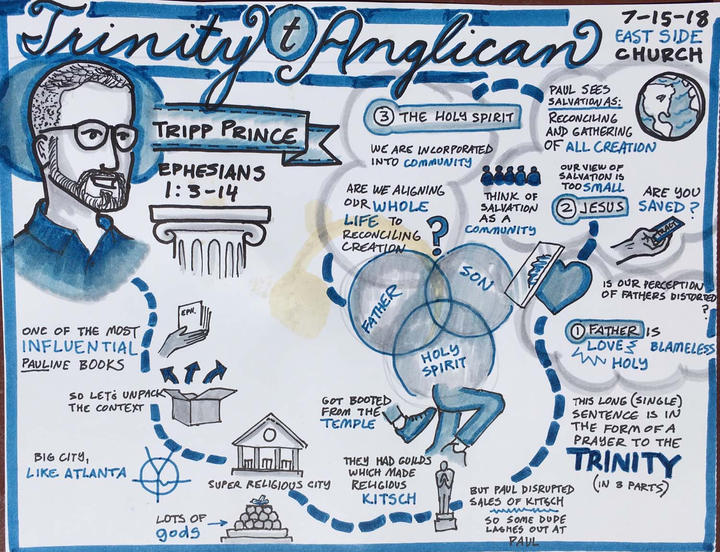 Trinity t Anglican
7-15-18
EAST SIDE
CHURCH
TRIPP PRINCE
EPHESIANS
1:3-14
ONE OF THE MOST
INFLUENTIAL
PAULINE BOOKS
EPH.
SO LET'S UNPACK
THE CONTEXT
BIG CITY,
LIKE ATLANTA
SUPER RELIGIOUS CITY
LOTS OF
gods
THEY HAD GUILDS
WHICH MADE
RELIGIOUS
KITSCH
BUT PAUL DISRUPTED
SALES OF KITSCH
SO SOME DUDE
LASHES OUT AT
PAUL
GOT BOOTED
FROM THE
TEMPLE
THIS LONG (SINGLE)
SENTENCE IS IN
THE FORM OF A
PRAYER TO THE
TRINITY
(IN 3 PARTS)
1 FATHER IS
LOVE &
BLAMELESS
HOLY
IS OUR PERCEPTION
OF FATHERS DISTORTED
?
2 JESUS
ARE YOU
SAVED?
OUR VIEW OF
SALVATION IS
TOO SMALL
PAUL SEES
SALVATION AS:
RECONCILING
AND GATHERING
OF ALL CREATION
THINK OF
SALVATION
AS A
COMMUNITY
3 THE HOLY SPIRIT
WE ARE INCORPORATED
INTO COMMUNITY
ARE WE ALIGNING
OUR WHOLE
LIFE TO
RECONCILING
CREATION
?
FATHER
SON
HOLY
SPIRIT